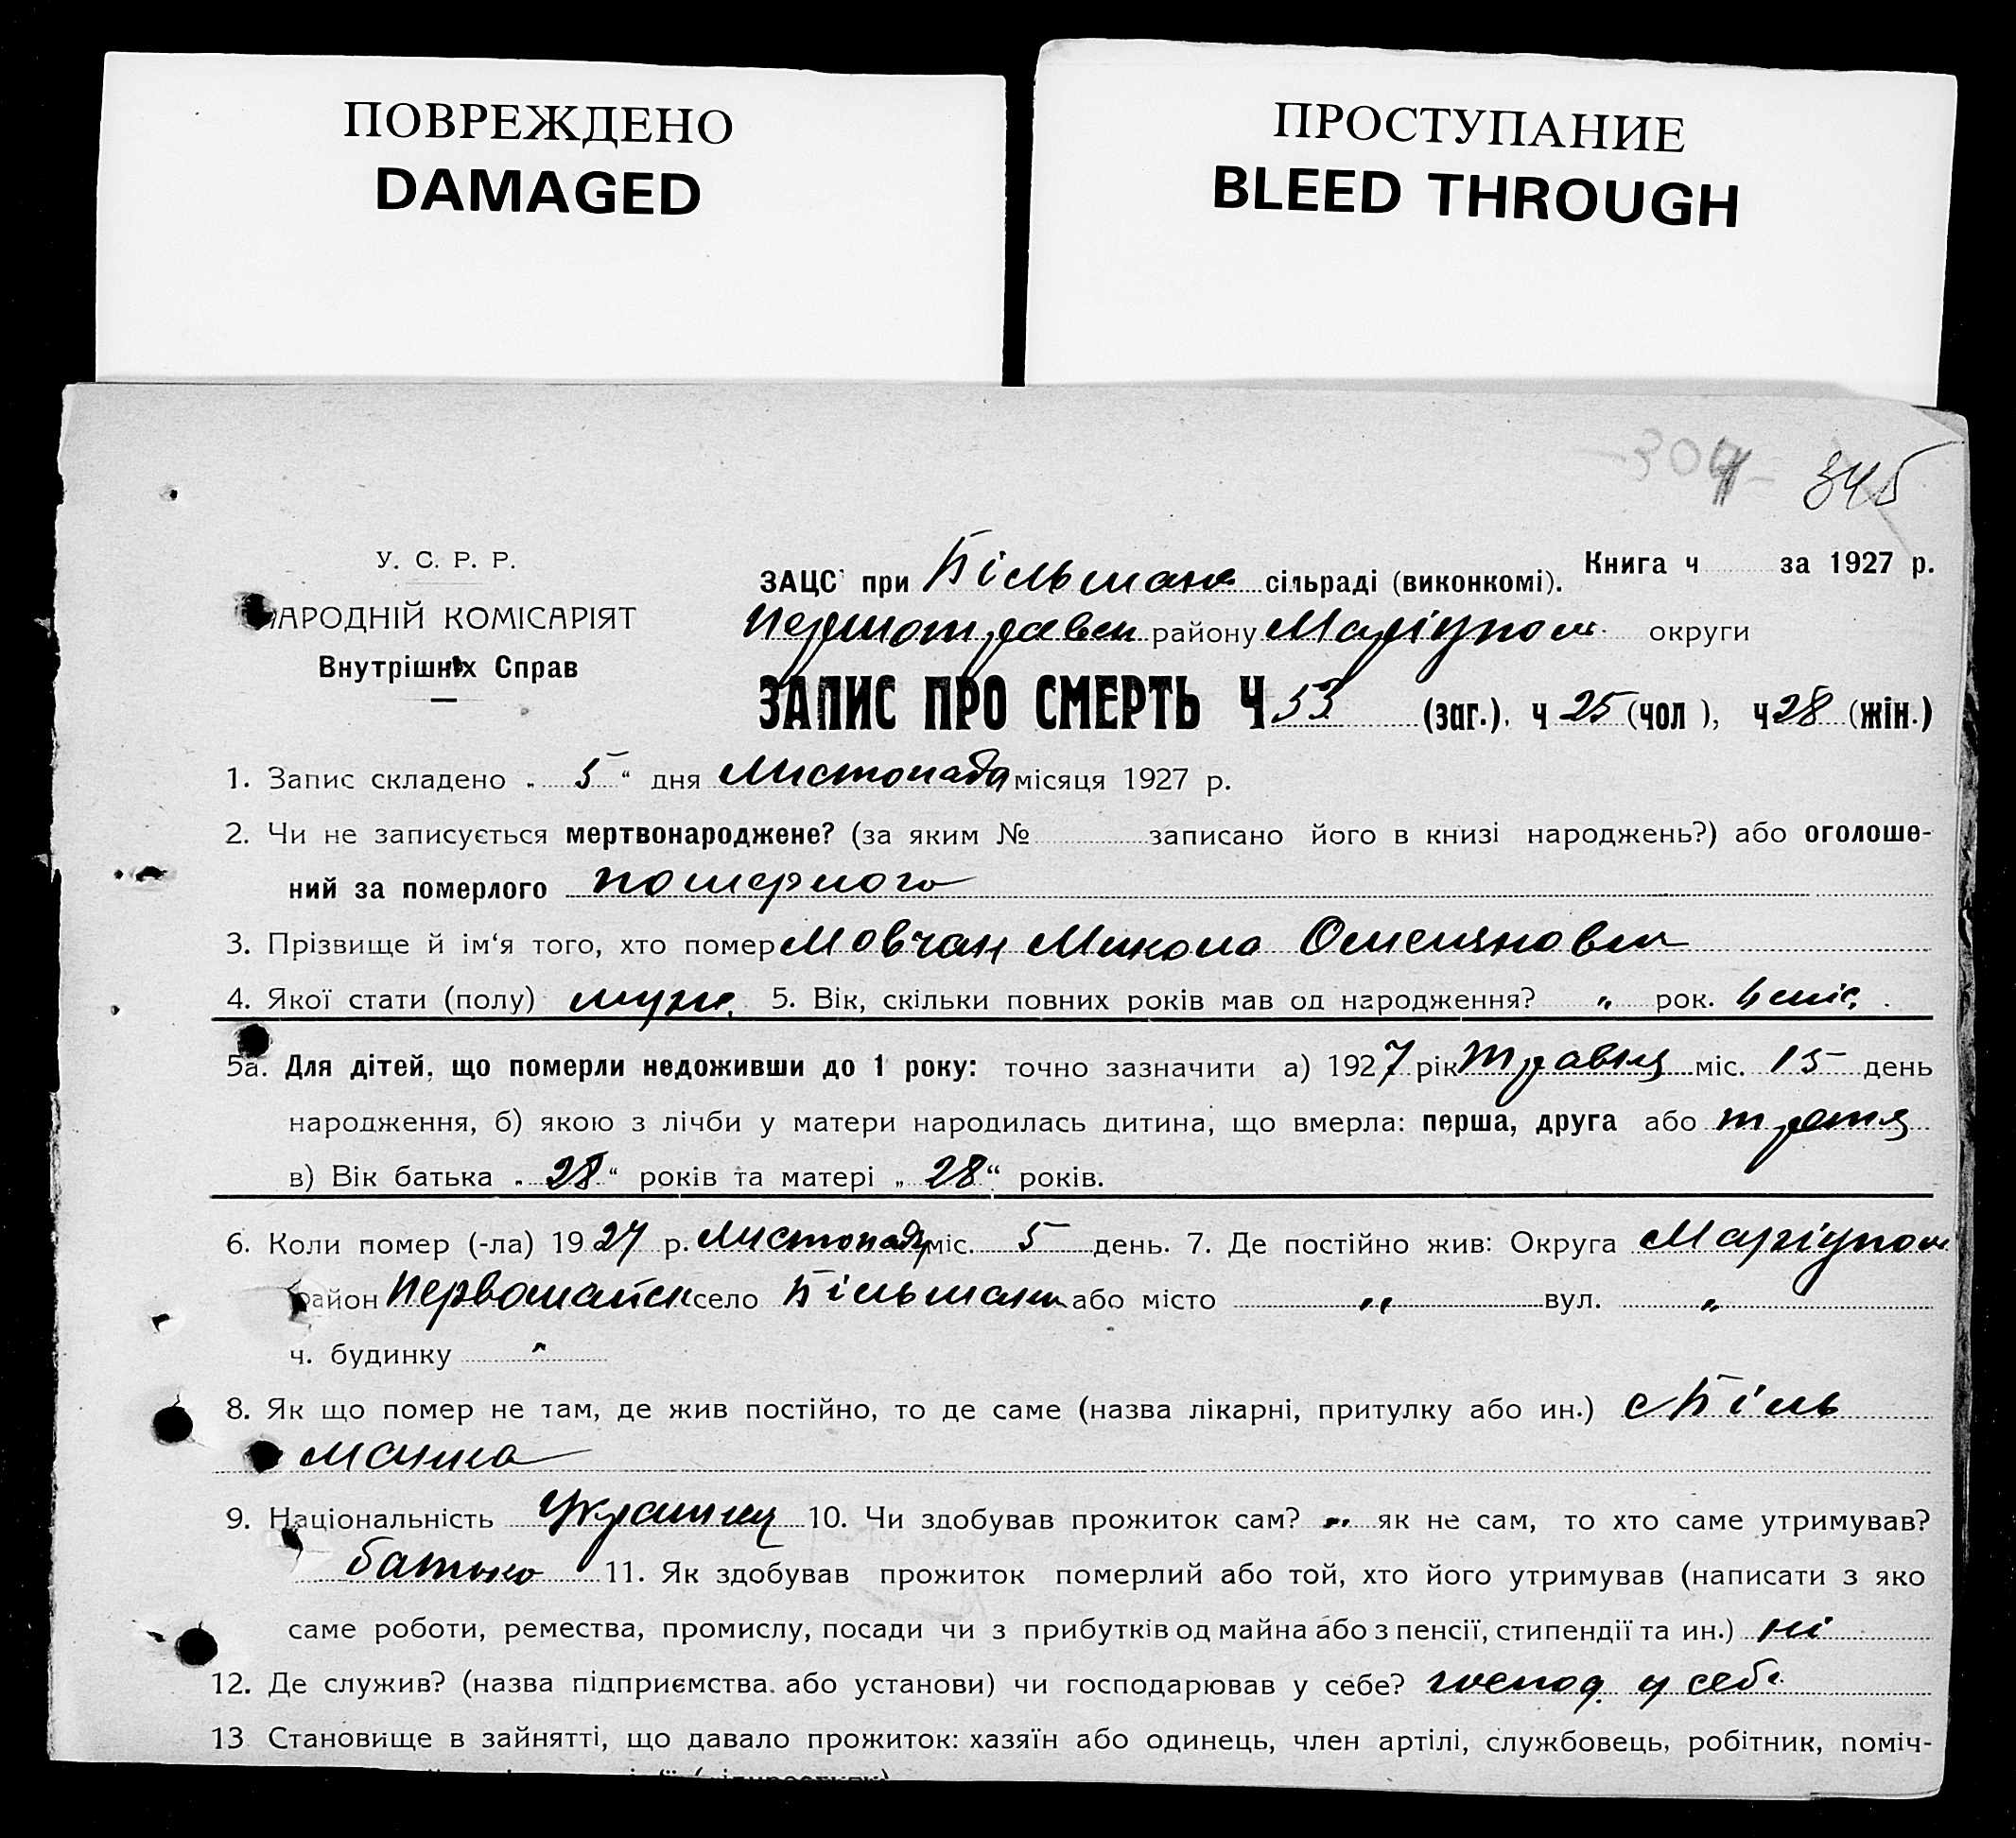 ПОВРЕЖДЕНО
DAMAGED
ПРОСТУПАНИЕ
BLEED THROUGH
345
У. С. Р. Р.
НАРОДНІЙ КОМІСАРІЯТ
Внутрішніх Справ
ЗАЦС при Більманк сільраді (виконкомі). Книга ч за 1927 р.
Першотравен району Маріупол округи
ЗАПИС ПРО СМЕРТЬ Ч 53 (заг.). ч 25 (чол ), ч 28 (жін.)
1. Запис складено „ 5 “ дня Листопада місяця 1927 р.
2. Чи не записується мертвонароджене? (за яким № записано його в книзі народжень?) або оголоше-
ний за померлого померлого
3. Прізвище й ім‘я того, хто помер Мовчан Микола Омелянович
4. Якої стати (полу) муж. 5. Вік, скільки повних років мав од народження? „ рок. 6 міс.
5а. Для дітей, що померли недоживши до 1 року: точно зазначити а) 1927 рік Травня міс. 15 день
народження, б) якою з лічби у матери народилась дитина, що вмерла: перша, друга або третя
в) Вік батька „ 28 “ років та матері „ 28 “ років.
6. Коли помер (-ла) 1927 р. Листопада міс. 5 день. 7. Де постійно жив: Округа Маріупол
район Первомайск село Більманк або місто „ вул. „
ч. будинку „
8. Як що помер не там, де жив постійно, то де саме (назва лікарні, притулку або ин.) с Біль
манка
9. Національність Украинец 10. Чи здобував прожиток сам? „ як не сам, то хто саме утримував?
батько 11. Як здобував прожиток померлий або той, хто його утримував (написати з яко
саме роботи, ремества, промислу, посади чи з прибутків од майна або з пенсії, стипендії та ин.) ні
12. Де служив? (назва підприємства або установи) чи господарював у себе? господ. у себе
13 Становище в зайнятті, що давало прожиток: хазяїн або одинець, член артілі, службовець, робітник, поміч-